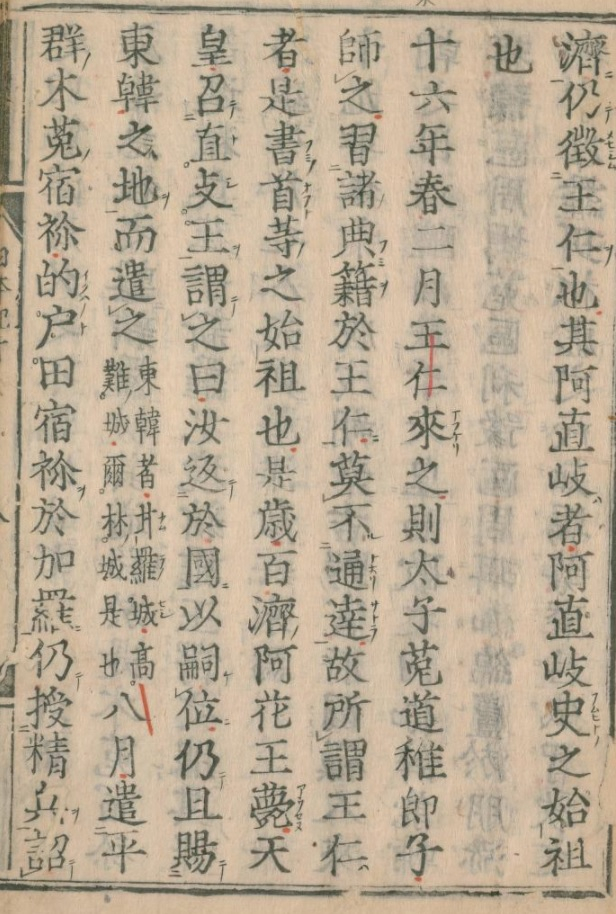 濟仍徵王仁也其阿直岐者阿直岐史之始祖
也
十六年春二月王仁來之則太子菟道稚郎子
師之習諸典籍於王仁莫不通達故所謂王仁
者是書首等之始祖也是歳百濟阿花王薨天
皇召直支王謂之曰汝返於國以嗣位仍且賜
東韓之地而遣之
東韓者甘羅城高
難城爾林城是也
八月遣平
群木菟宿祢的戸田宿祢於加羅仍授精兵詔